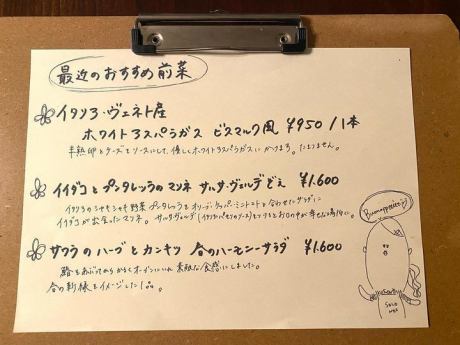 最近のおすすめ前菜
イタリア・ヴェネト産
ホワイトアスパラガス ビスマルク風 ¥950/1本
半熟卵とチーズをソースにして、優しくホワイトアスパラガスにかけます。たまりません。
イイダコとプンタレッラのマリネ サルサ・ヴェルデ どえ ¥1.600
イタリアのシャキシャキ野菜プンタレッラをオリーブ、ケッパー、ミントと合わせたサラダに
イイダコが出会ったマリネ。サルサヴェルデ(イタリアンパセリのソース)
サワラのハーブとカンキツ 春のハーモニーサラダ ¥1.600
オーブンにいれ 素敵な食感にしました。
春の新緑をイメージした1皿。
Buonappetito